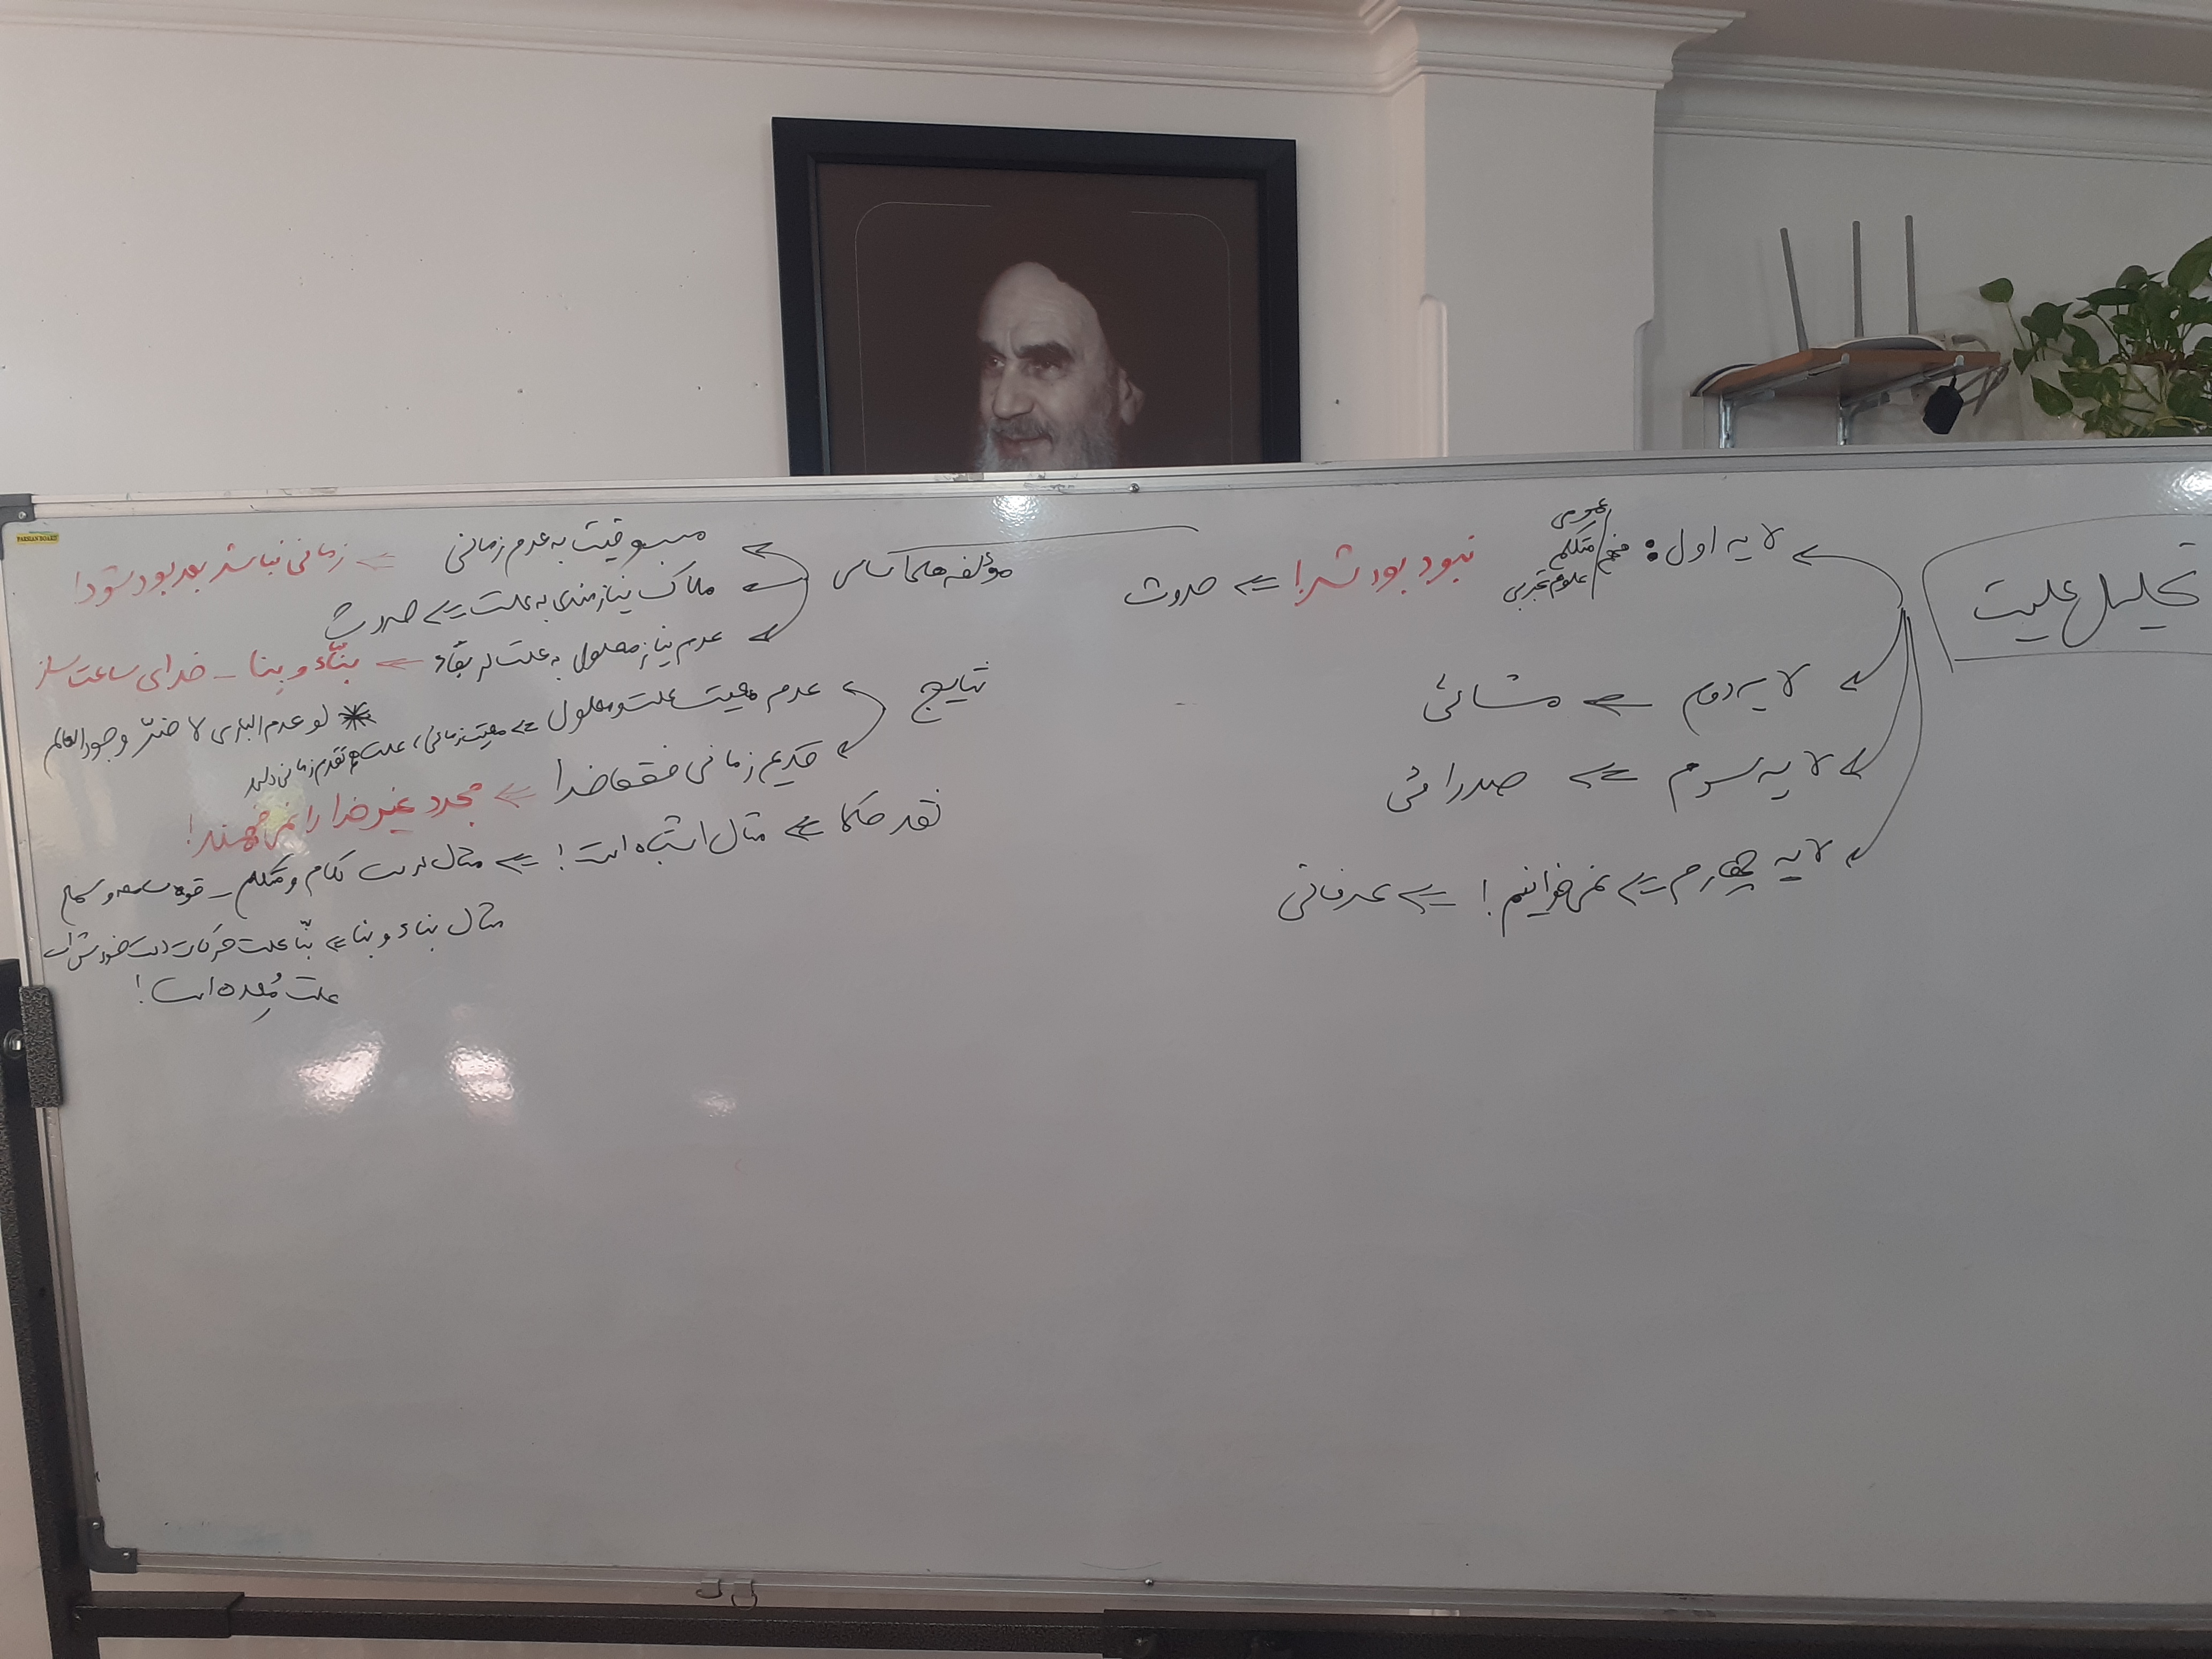 تحلیل علیت
لایه اول: فهم عمومی / متکلم / علوم تجربی
نبود بود شد! => حدوث
لایه دوم => مشائی
لایه سوم => صدرائی
لایه چهارم => نمی‌خوانیم! => عرفانی
مؤلفه‌های اساسی
مسبوقیت به عدم زمانی => زمانی نباشد بعد بود شود!
ملاک نیازمندی به علت => حدوث
عدم نیاز معلول به علت در بقاء => بنّاء و بنا - خدای ساعت ساز
* لو عدم الباری لا ضرّ وجود العالم
نتایج
عدم معیت علت و معلول => معیت زمانی، علت تقدم زمانی دارد
قدیم زمانی فقط خدا => مجرد غیر خدا را نمی‌فهمند!
نقد حکما => مثال اشتباه است! => مثال درست کلام و متکلم - قوه سامعه و سماع
مثال بناء و بنا => بنّا علت حرکات دست خودش است
علت مُعِده است!
PARSIAN BOARD